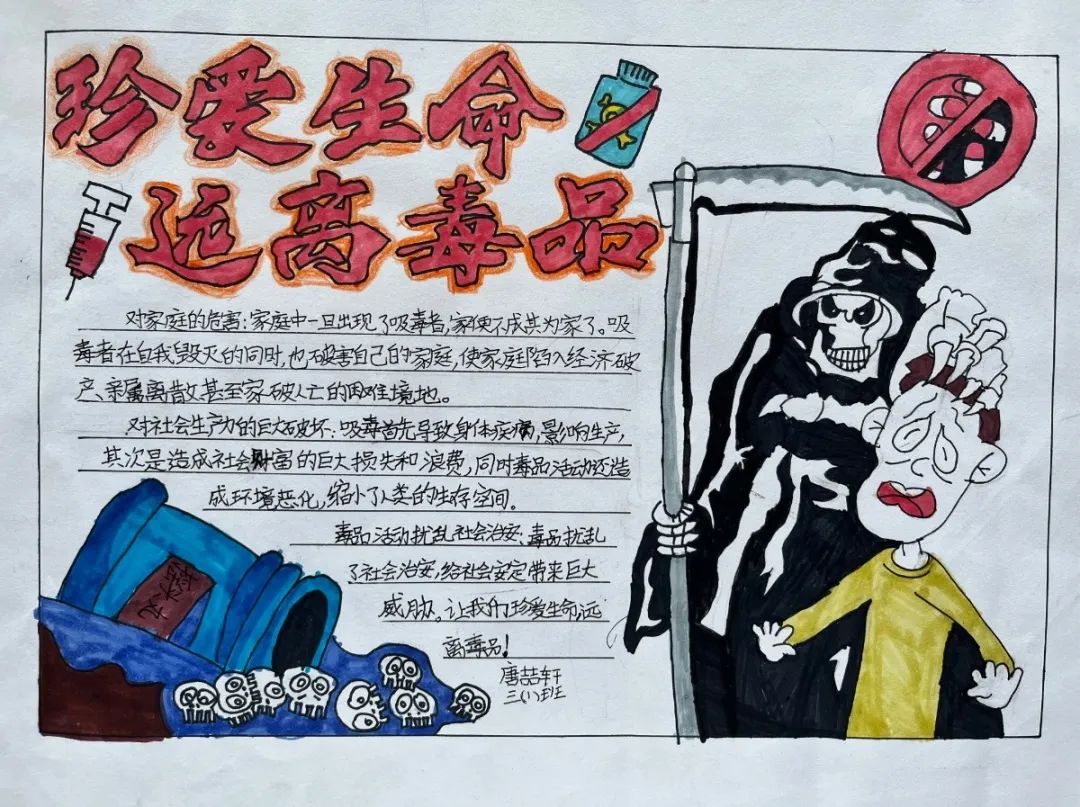 珍爱生命
远离毒品
对家庭的危害:家庭中一旦出现了吸毒者,家便不成其为家了。吸
毒者在自我毁灭的同时,也破害自己的家庭,使家庭陷入经济破
产、亲属离散、甚至家破人亡的困难境地。
对社会生产力的巨大破坏:吸毒首先导致身体疾病,影响生产,
其次是造成社会财富的巨大损失和浪费,同时毒品活动还造
成环境恶化,缩小了人类的生存空间。
毒品活动扰乱社会治安:毒品扰乱
了社会治安,给社会安定带来巨大
威胁。让我们珍爱生命,远
离毒品!
唐喆轩
三(1)班